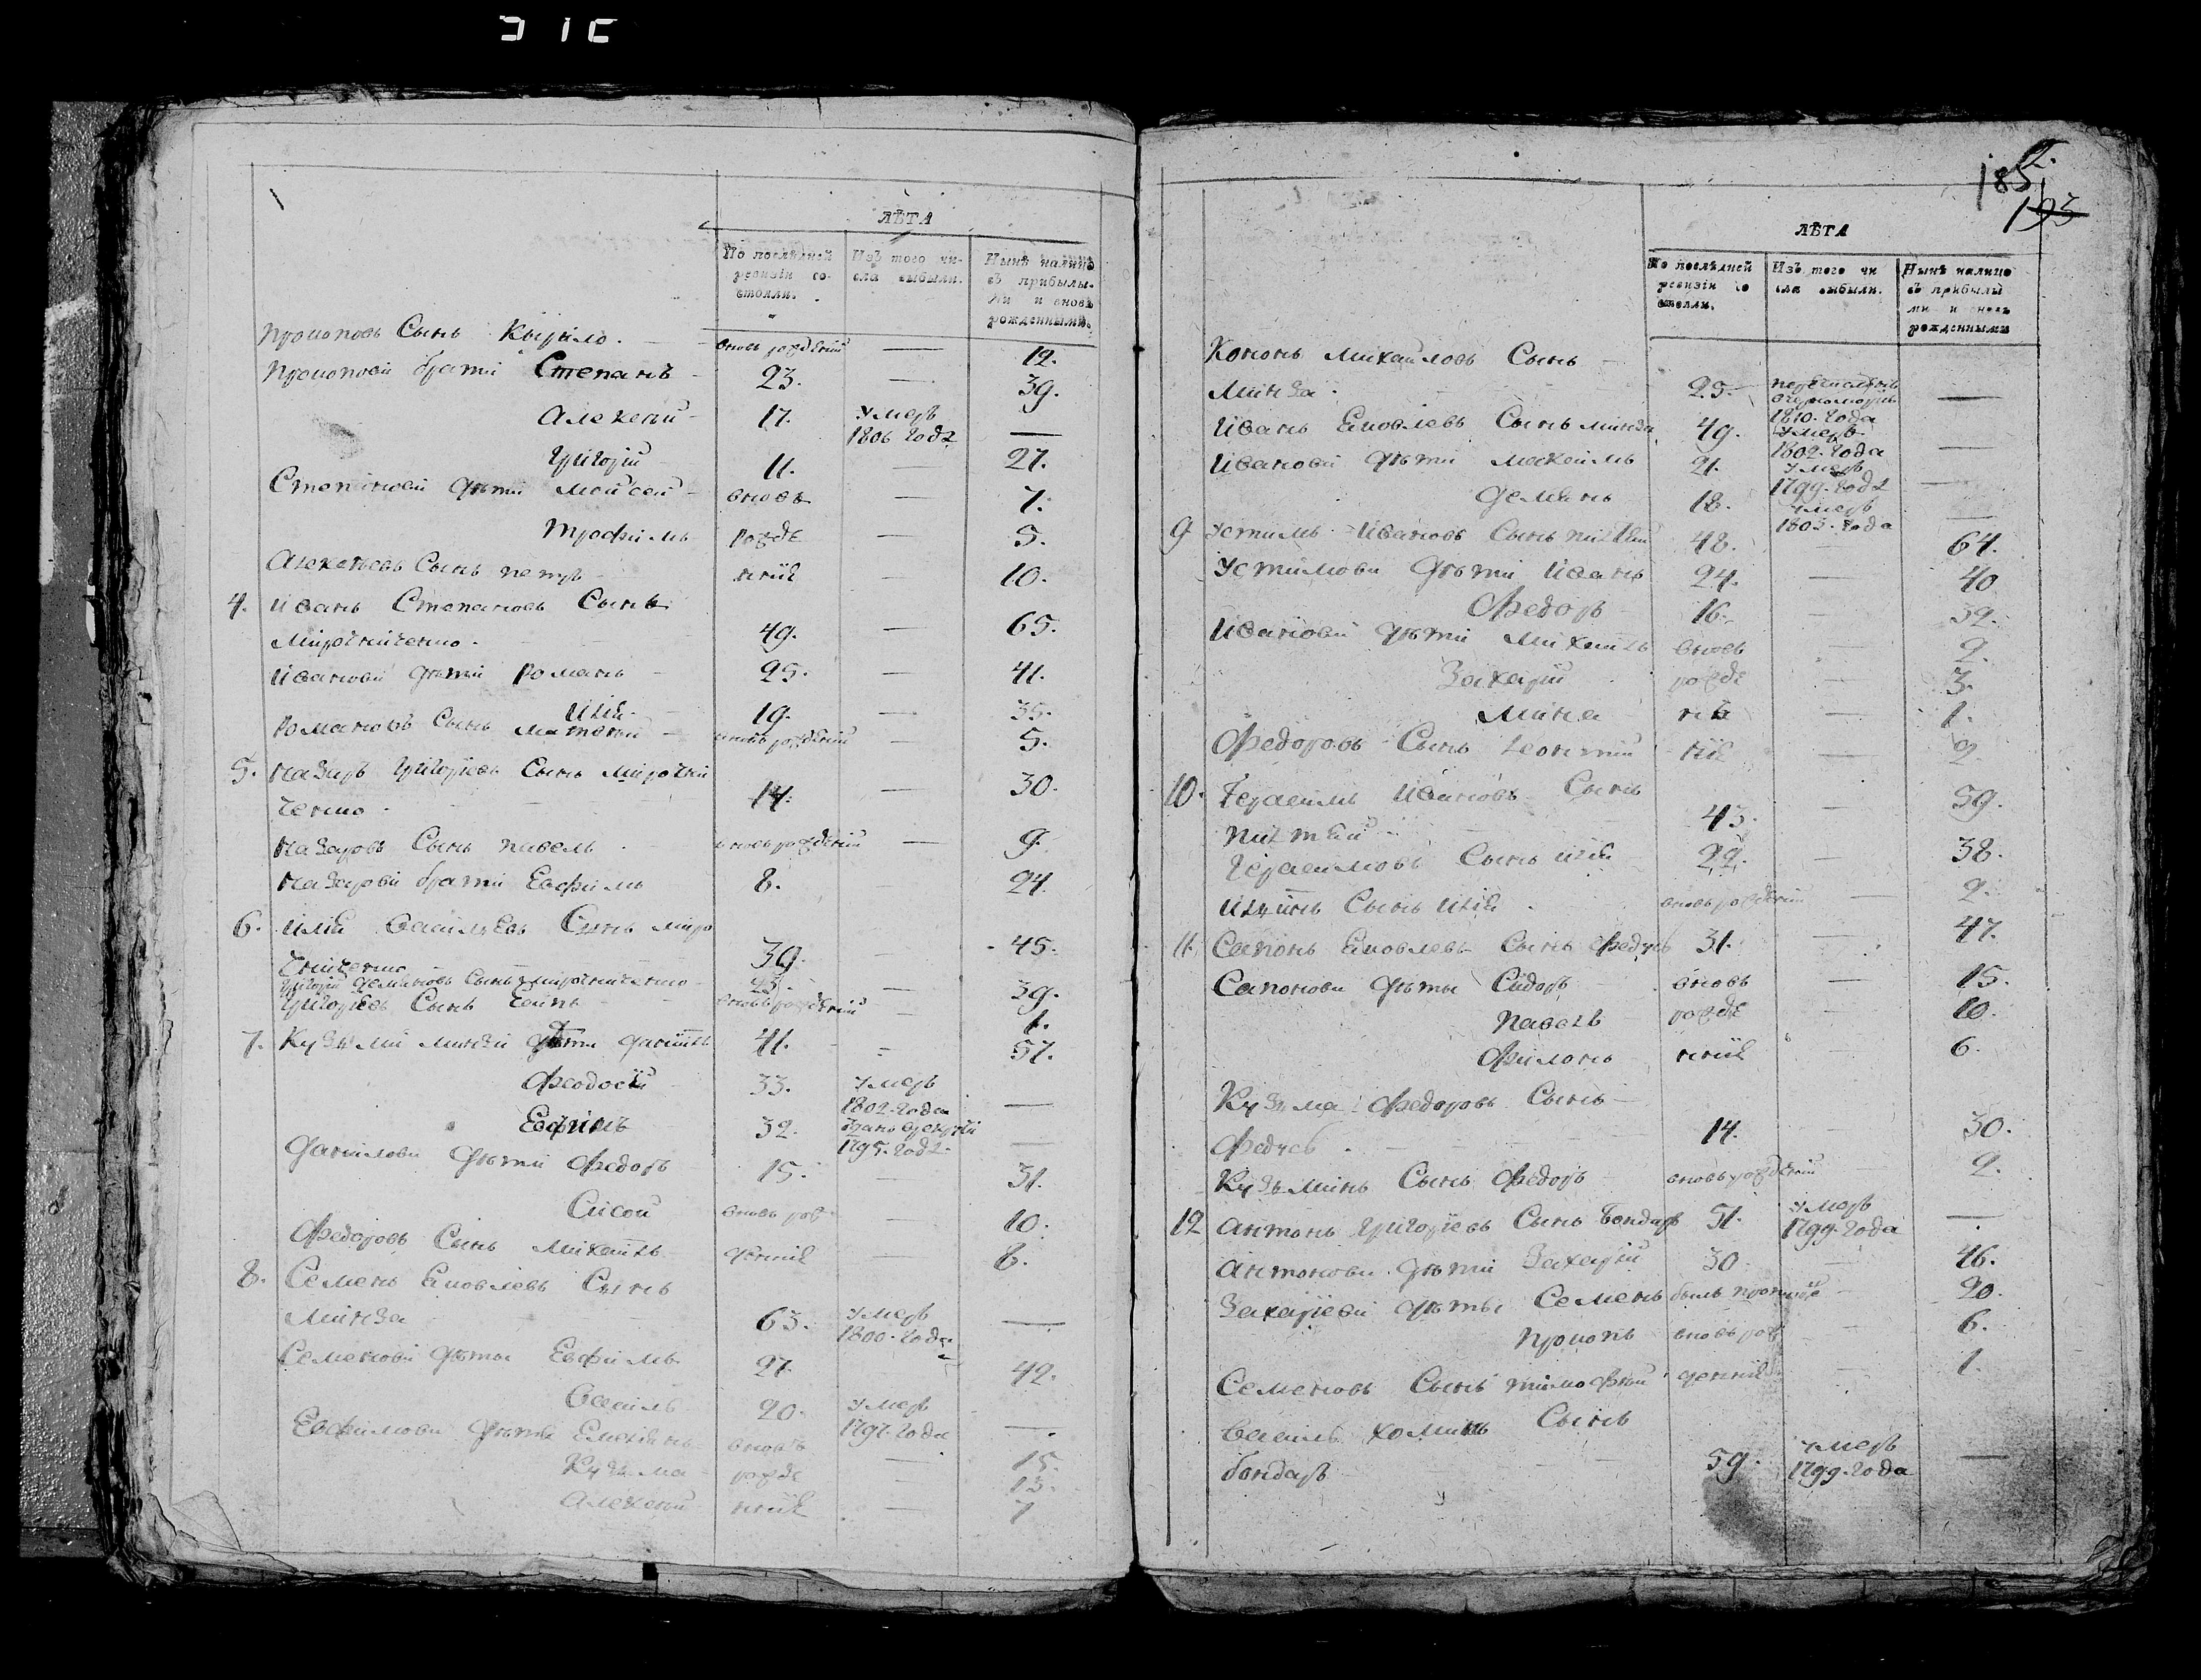 ЛѢТА
По послѣдней ревизіи состояли.
Изъ того числа выбыли.
Нынѣ налицо съ прибылыми и вновь рожденными.
Прокоповъ Сынъ Кырило. вновь рожденній — 12.
Прокоповы братія Степанъ 23. — 39.
Алексѣй 17. умеръ 1806 года —
Григорій 11. — 27.
Степановы дѣти Мойсей вновь — 7.
Трофимъ рожде — 5.
Алексѣевъ Сынъ петръ нніе — 10.
4. Иванъ Степановъ Сынъ
Мирошниченко. 49. — 65.
Ивановы дѣти Романъ 25. — 41.
Илія 19. — 35.
Романовъ Сынъ Матвей вновь рожденій — 5.
5. Назаръ Григоріевъ Сынъ Мирошни
ченко. 14. — 30.
Назаровъ Сынъ павелъ вновь рожденій — 9.
Назаровы братія Евфимъ 8. 24.
6. Илія Васильевъ Сынъ миро
шниченко 39. — 45.
Григорій Деминовъ Сынъ мирошниченко 23. — 39.
Григоріевъ Сынъ вновь рожденій — 1.
7. Кузьми минзи дѣти Даніилъ 41. 57.
Феодосій 33. умеръ 1802 года —
Евфимъ 32. 1795 года —
Даніиловы дѣти Федоръ 15. — 31.
Сисой вновь рож — 10.
Федоровъ Сынъ Михаилъ денніе — 8.
8. Семенъ Яковлевъ Сынъ
Минза 63. умеръ 1800 года —
Семеновы дѣти Евфимъ 27. — 42.
Василь 20. умеръ 1797 года —
Евфимовы дѣти Емелянъ вновь — 15.
Кузьма рожде — 13.
Алексѣй нніе — 7
2.
185
193
ЛѢТА
По послѣдней ревизіи состояли.
Изъ того числа выбыли.
Нынѣ налицо съ прибылыми и вновь рожденными
Кононъ Михайловъ Сынъ
Минза. 25. 1810 года —
Иванъ Яковлевъ Сынъ минза 49. умеръ 1802 года —
Ивановы дѣти Максимъ 21. умеръ 1799 года —
Демянъ 18. умеръ 1803 года —
9 Устимъ Ивановъ Сынъ 48. — 64.
Устимовы дѣти Иванъ 24. — 40
Федоръ 16. — 32.
Ивановы дѣти Михаилъ вновь — 9.
Захарій рожде — 3.
Мина — 1.
Федоровъ Сынъ Леонтій — 2.
10. Герасимъ Ивановъ Сынъ
43. — 59.
Герасимовъ Сынъ Илія 22. — 38.
Ильинъ Сынъ Илія вновь рожденій — 2.
11. Сапонъ Яковлевъ Сынъ Федчевъ 31. — 47.
Сапоновы дѣти Сидоръ вновь — 15.
Павелъ рожде — 10.
Филонъ нніе — 6.
Кузьма Федоровъ Сынъ
Федчевъ 14. — 30.
Кузьминъ Сынъ Федоръ вновь рожденній 2.
12 Антонъ Григоріевъ Сынъ Бондаръ 51. умеръ 1799 года —
Антоновы дѣти Захарій 30. — 46.
Захаріевы дѣти Семенъ былъ — 20.
Прокопъ вновь рож — 6.
Семеновъ Сынъ тимофѣй денніе — 1.
Василь Хоминъ Сынъ
бондаръ 59. умеръ 1799 года —